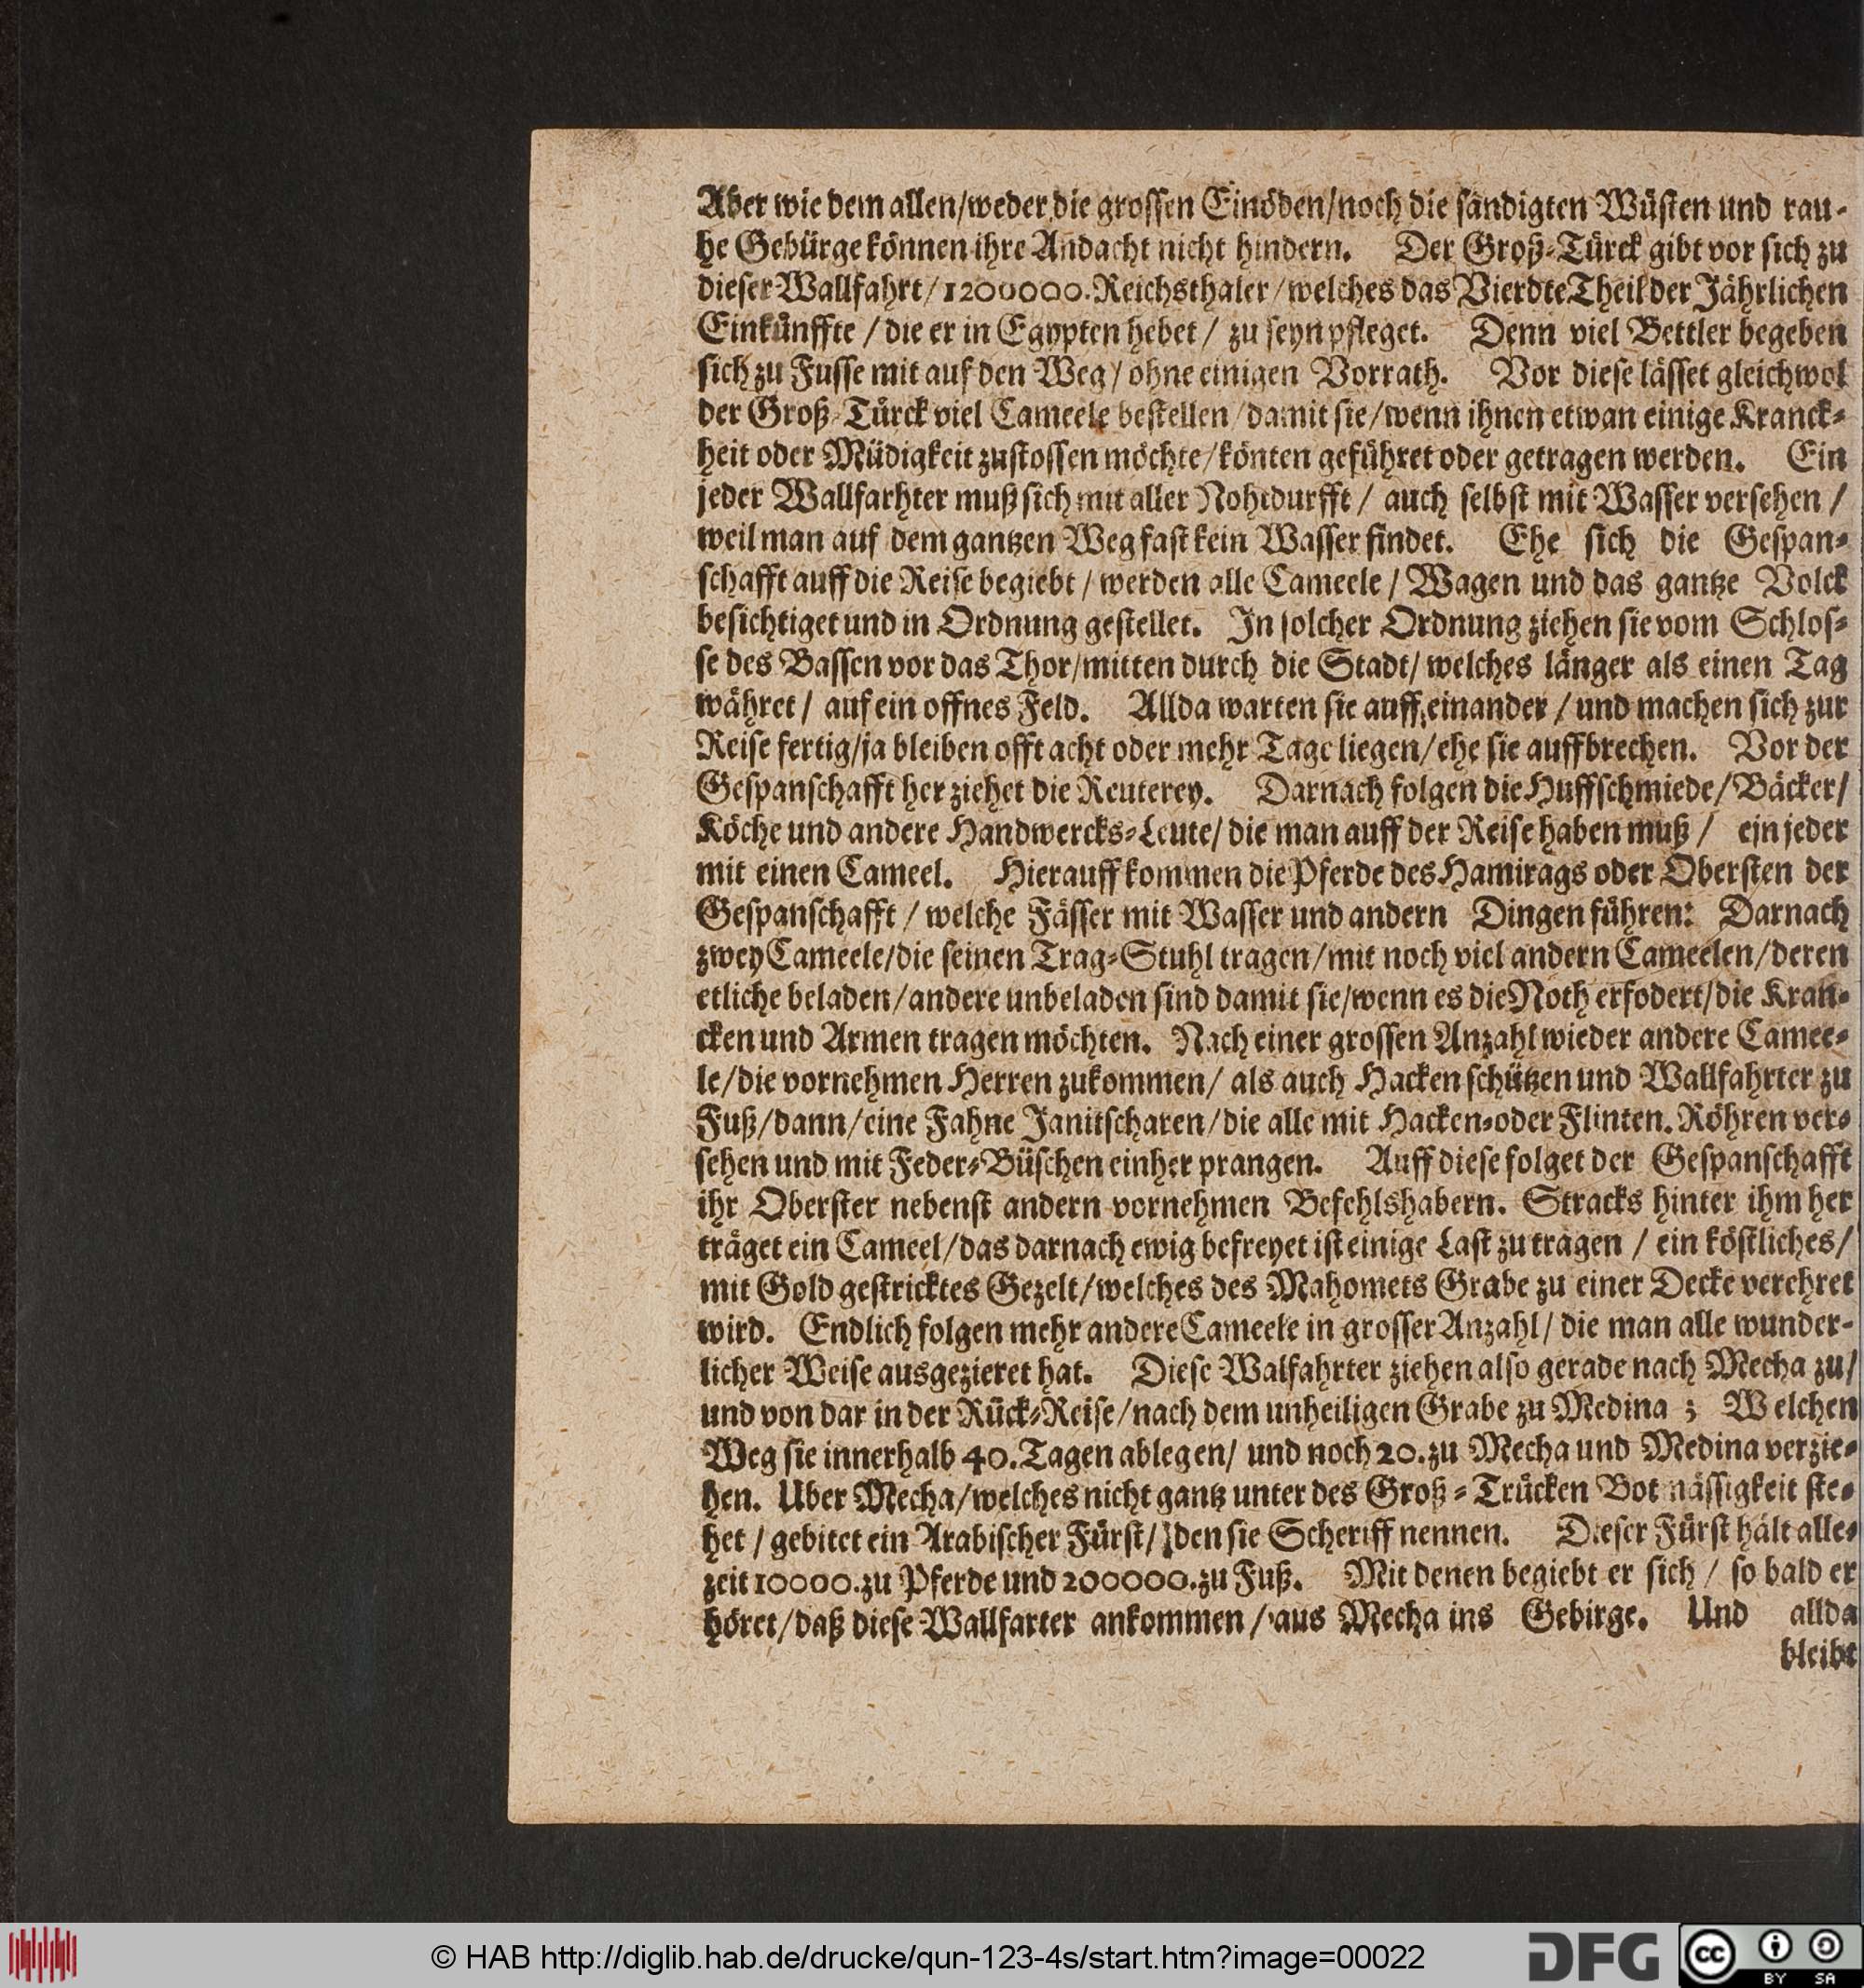 Aber wie dem allen/weder die grossen Einöden/noch die sändigten Wüsten und rau-
he Gebürge können ihre Andacht nicht hindern. Der Groß-Türck gibt vor sich zu
dieser Wallfahrt/1200000.Reichsthaler/welches das Vierdte Theil der Jährlichen
Einkünffte/die er in Egypten hebet/ zu seyn pfleget. Denn viel Bettler begeben
sich zu Fusse mit auf den Weg/ohne einigen Vorrath. Vor diese lässet gleichwol
der Groß-Türck viel Cameele bestellen/damit sie/wenn ihnen etwan einige Kranck-
heit oder Müdigkeit zustossen möchte/könten geführet oder getragen werden. Ein
jeder Wallfarhter muß sich mit aller Nohtdurfft/ auch selbst mit Wasser versehen/
weil man auf dem gantzen Weg fast kein Wasser findet. Ehe sich die Gespan-
schafft auff die Reise begiebt/werden alle Cameele/Wagen und das gantze Volck
besichtiget und in Ordnung gestellet. In solcher Ordnung ziehen sie vom Schlos-
se des Bassen vor das Thor/mitten durch die Stadt/welches länger als einen Tag
währet/ auf ein offnes Feld. Allda warten sie auff einander/und machen sich zur
Reise fertig/ja bleiben offt acht oder mehr Tage liegen/ehe sie auffbrechen. Vor der
Gespanschafft her ziehet die Reuterey. Darnach folgen die Huffschmiede/Bäcker/
Köche und andere Handwercks-Leute/die man auff der Reise haben muß/ ein jeder
mit einen Cameel. Hierauff kommen die Pferde des Hamirags oder Obersten der
Gespanschafft/welche Fässer mit Wasser und andern Dingen führen: Darnach
zwey Cameele/die seinen Trag-Stuhl tragen/mit noch viel andern Cameelen/deren
etliche beladen/andere unbeladen sind damit sie/wenn es die Noth erfodert/die Kran-
cken und Armen tragen möchten. Nach einer grossen Anzahl wieder andere Camee-
le/die vornehmen Herren zukommen/ als auch Hacken schützen und Wallfahrter zu
Fuß/dann/eine Fahne Janitscharen/die alle mit Hacken-oder Flinten-Röhren ver-
sehen und mit Feder-Büschen einher prangen. Auff diese folget der Gespanschafft
ihr Oberster nebenst andern vornehmen Befehlshabern. Stracks hinter ihm her
träget ein Cameel/das darnach ewig befreyet ist einige Last zu tragen/ein köstliches/
mit Gold gestricktes Gezelt/welches des Mahomets Grabe zu einer Decke verehret
wird. Endlich folgen mehr andere Cameele in grosser Anzahl/die man alle wunder-
licher Weise ausgezieret hat. Diese Walfahrter ziehen also gerade nach Mecha zu/
und von dar in der Rück-Reise/nach dem unheiligen Grabe zu Medina; Welchen
Weg sie innerhalb 40. Tagen ablegen/ und noch 20. zu Mecha und Medina verzie-
hen. Uber Mecha/welches nicht gantz unter des Groß-Trücken Botmässigkeit ste-
het/gebitet ein Arabischer Fürst/den sie Scheriff nennen. Dieser Fürst hält alle-
zeit 10000.zu Pferde und 200000.zu Fuß. Mit denen begiebt er sich/ so bald er
höret/daß diese Wallfarter ankommen/aus Mecha ins Gebirge. Und allda
bleibt
© HAB http://diglib.hab.de/drucke/qun-123-4s/start.htm?image=00022
DFG
cc BY SA